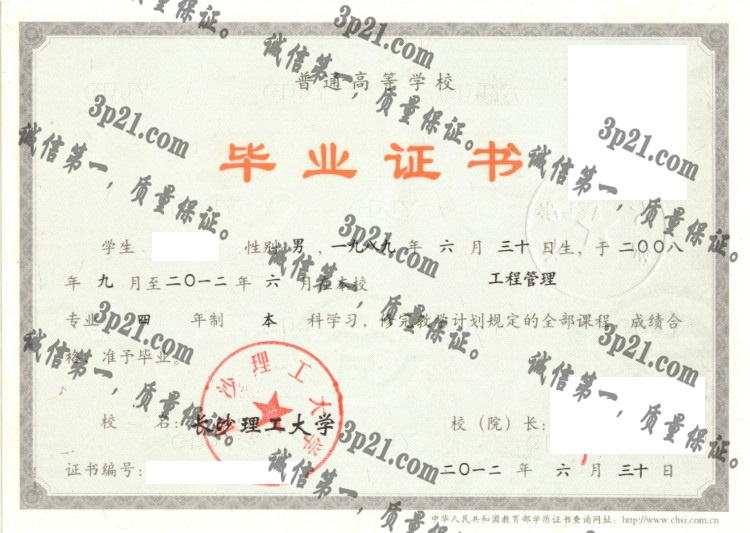 普通高等学校
毕业证书
学生 性别 男 ,一九八九 年 六 月 三十 日生,于 二〇〇八
年 九 月至 二〇一二 年 六 月在本校 工程管理
专业 四 年制 本 科学习,修完教学计划规定的全部课程,成绩合
格,准予毕业。
校 名: 长沙理工大学 校(院)长:
证书编号: 二〇一二 年 六 月 三十 日
中华人民共和国教育部学历证书查询网址: http://www.chsi.com.cn
长沙理工大学
质量保证。
3p21.com
诚信第一,质量保证。
3p21.com
诚信第一,质量保证。
3p21.com
诚信第一,质量保证。
3p21.com
诚信第一,质量保证。
3p21.com
诚信第一,质量保证。
3p21.com
诚信第一,质量保证。
3p21.com
诚信第一,质量保证。